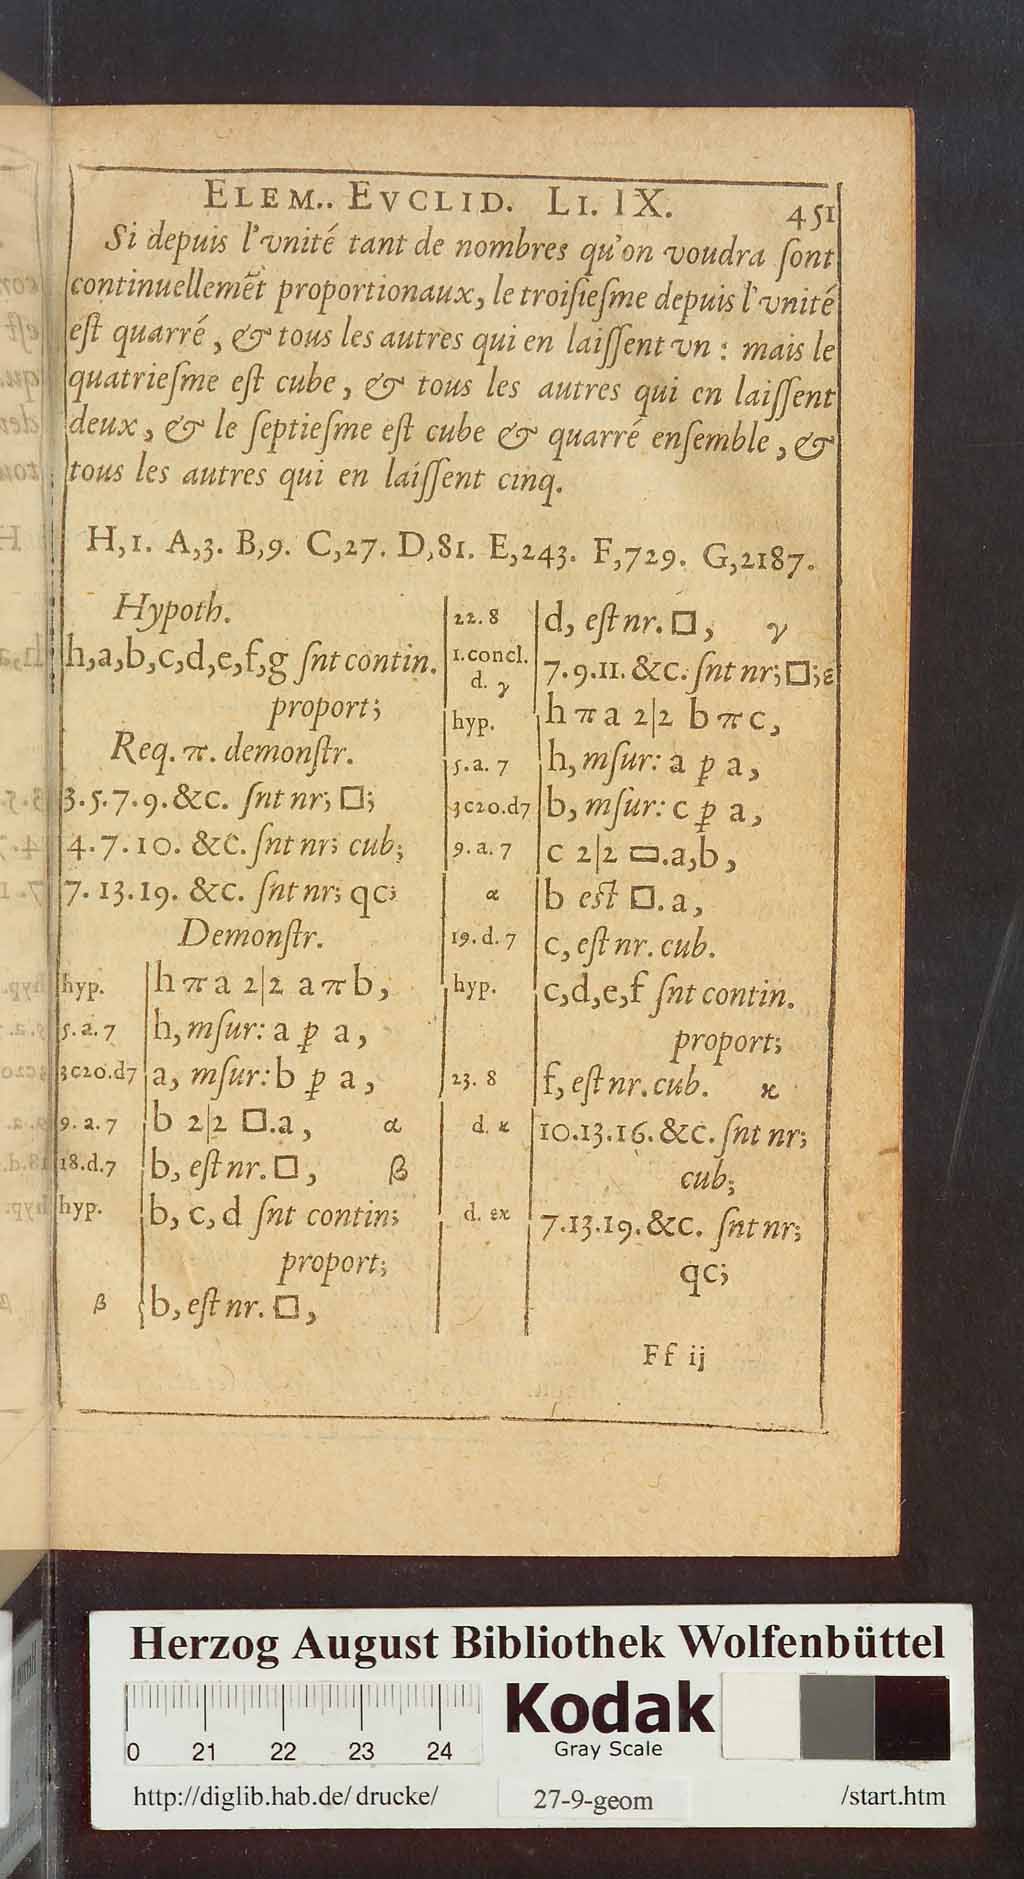 ELEM.. EVCLID. LI. IX. 451
Si depuis l'vnité tant de nombres qu'on voudra ſont
continuellemẽt proportionaux, le troiſieſme depuis l'vnité
eſt quarré, & tous les autres qui en laiſſent vn : mais le
quatrieſme eſt cube, & tous les autres qui en laiſſent
deux, & le ſeptieſme eſt cube & quarré enſemble, &
tous les autres qui en laiſſent cinq.
H,1. A,3. B,9. C,27. D,81. E,243. F,729. G,2187.
Hypoth.
h,a,b,c,d,e,f,g ſnt contin.
proport;
Req. π. demonſtr.
3.5.7.9.&c. ſnt nr; □;
4.7.10. &c. ſnt nr; cub;
7.13.19. &c. ſnt nr; qc;
Demonſtr.
hyp. h π a 2|2 a π b,
5.a.7 h, mſur: a p̱ a,
3c20.d7 a, mſur: b p̱ a,
9.a.7 b 2|2 □.a, α
18.d.7 b, eſt nr. □, β
hyp. b, c, d ſnt contin;
proport;
β b, eſt nr. □,
22.8 d, eſt nr. □, γ
1.concl.
d. γ 7.9.11. &c. ſnt nr; □; ε
hyp. h π a 2|2 b π c,
5.a.7 h, mſur: a p̱ a,
3c20.d7 b, mſur: c p̱ a,
9.a.7 c 2|2 ▭.a,b,
α b eſt □. a,
19.d.7 c, eſt nr. cub.
hyp. c,d,e,f ſnt contin.
proport;
23.8 f, eſt nr. cub. ϰ
d. ϰ 10.13.16. &c. ſnt nr;
cub;
d. εϰ 7.13.19. &c. ſnt nr;
qc;
Ff ij
Herzog August Bibliothek Wolfenbüttel
Kodak
Gray Scale
0 21 22 23 24
http://diglib.hab.de/ drucke/ 27-9-geom /start.htm